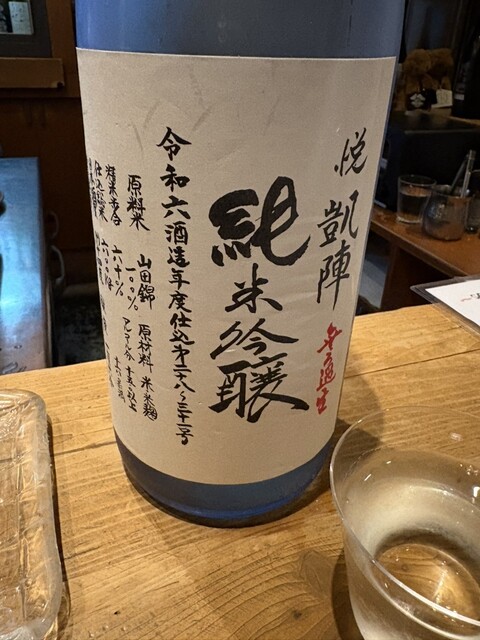 悦 凱陣
無濾過生
純米吟醸
令和六酒造年度仕込第二八〜三十一号
原料米 山田錦 一〇〇% 原材料 米 米麹
精米歩合 六十% アルコール分 十五以上